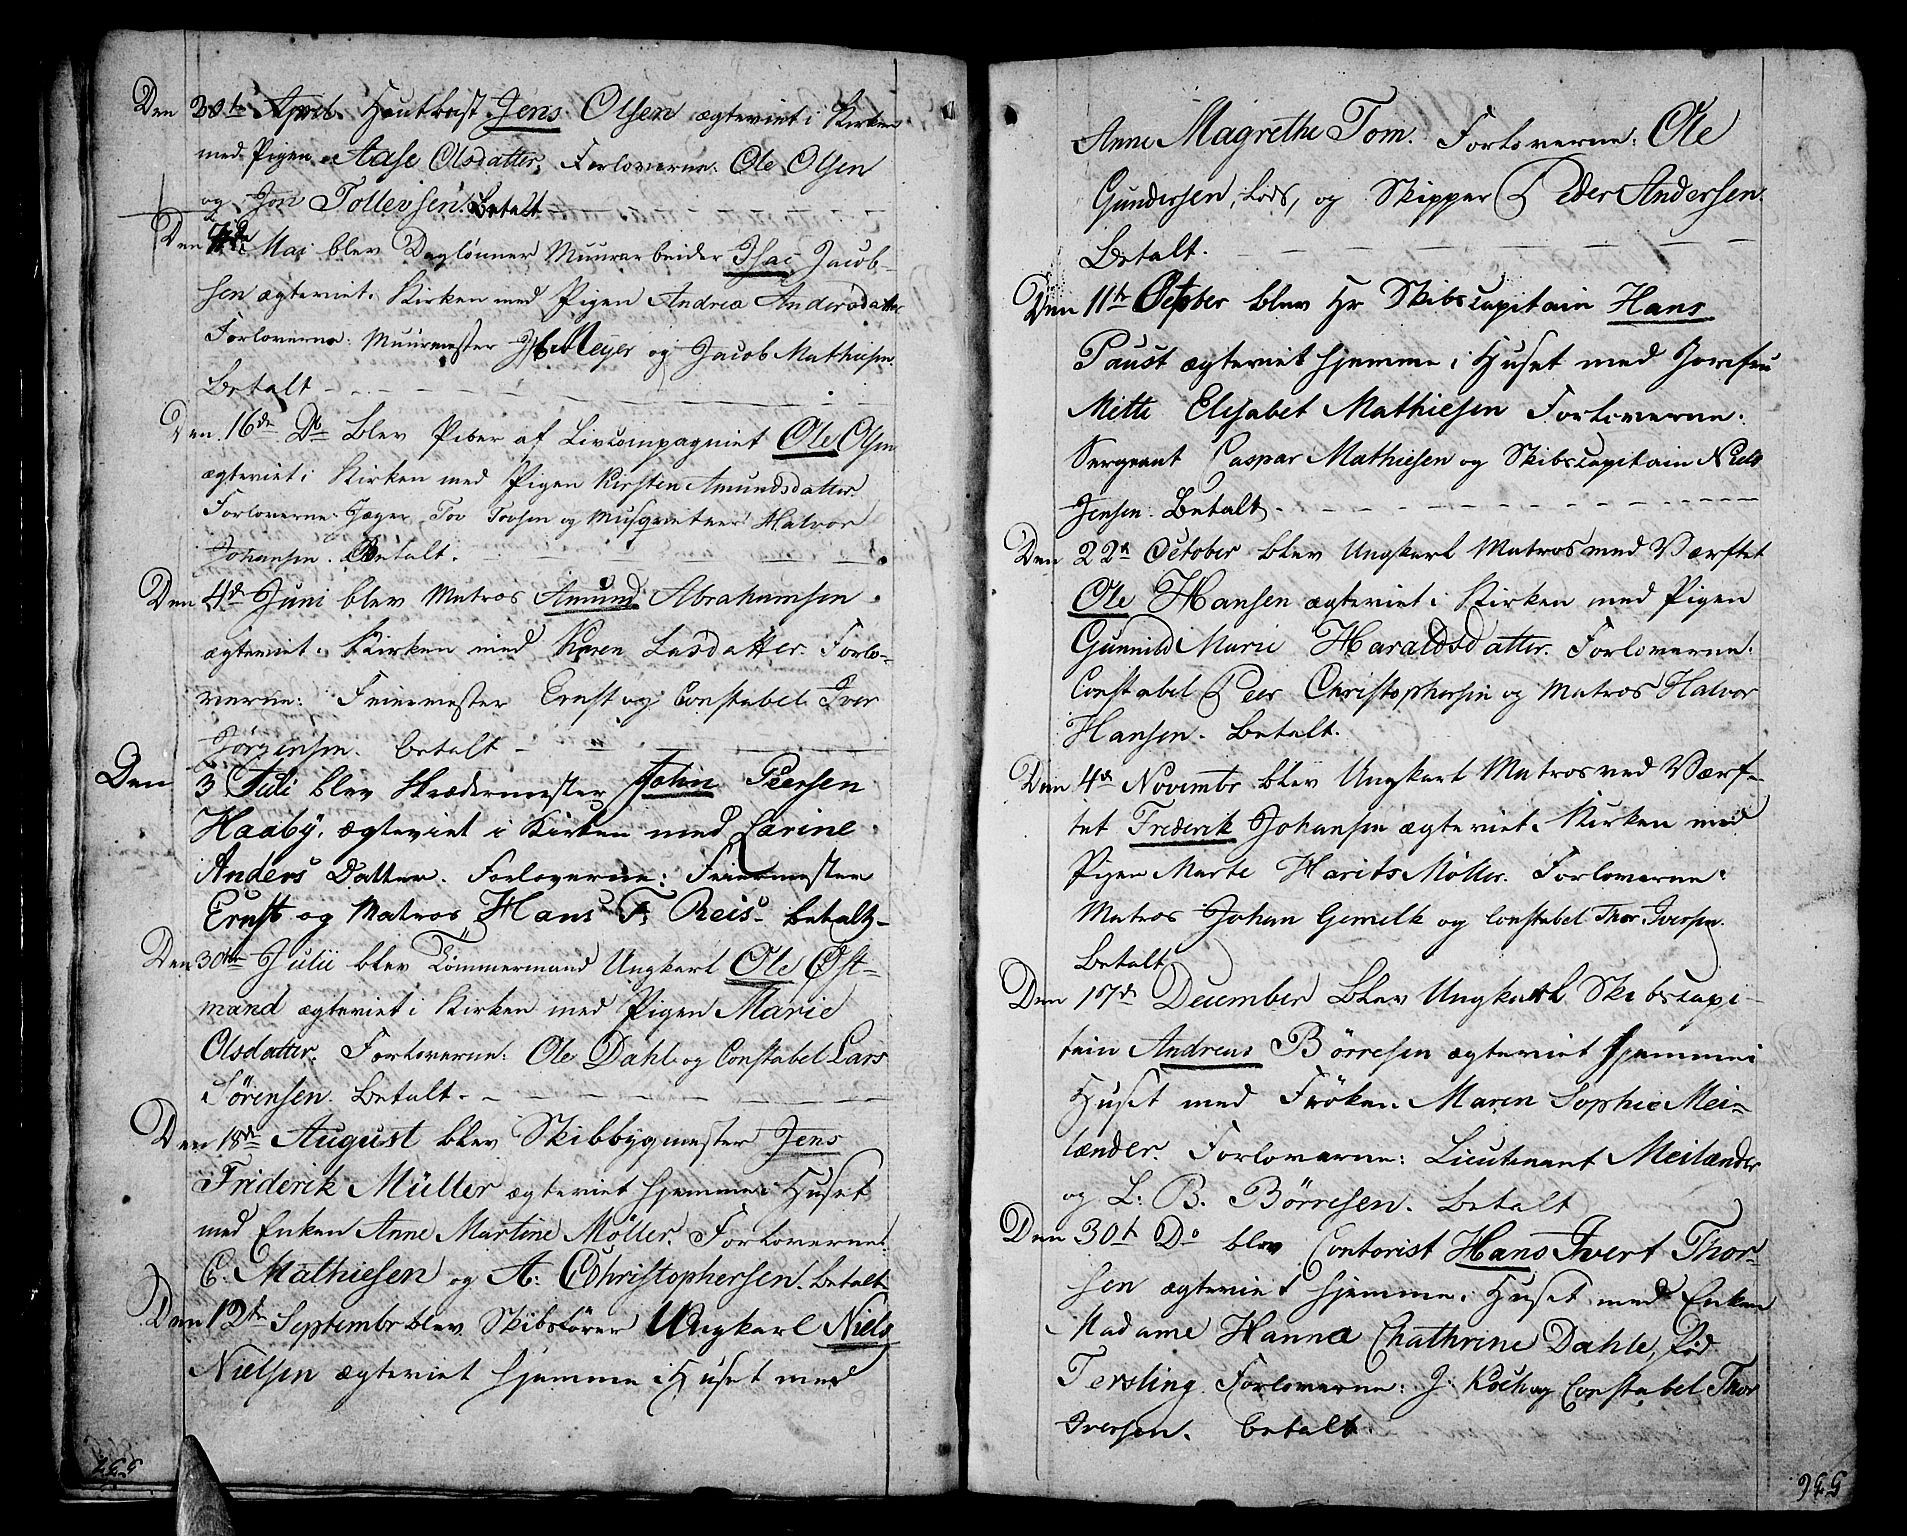 Den 30te April Hautboist Jens Olsen ægteviet i Kirken
med Pigen Aase Olsdatter, Forloverne: Ole Olsen
og Jon Tollevsen. Betalt
Den Mai blev Daglønner Muurarbeider Isac Jacob-
sen ægteviet i Kirken med Pigen Andrea Andersdatter
Forloverne: Muurmester Meyer og Jacob Mathiesen.
Betalt
Den 16de Do blev Piber af Livcompagniet Ole Olsen
ægteviet i Kirken med Pigen Kirsten Amundsdatter.
Forloverne: Jæger Tov Tovsen og Musqueteer Halvor
Johansen. Betalt.
Den 4de Juni blev Matros Amund Abrahamsen
ægteviet i Kirken med Karen Lasdatter. Forlo-
verne: Feiermester Ernst og Constabel Iver
Jørgensen. betalt
Den 3 Juli blev Skrædermester John Peersen
Haaby, ægteviet i Kirken med Carine
Anders Datter. Forloverne: Feiermester
Ernst og Matros Hans T. Reis. betalt
Den 30te Julii blev Tömmermand Ungkarl Ole Øst-
mand ægteviet i Kirken med Pigen Marie
Olsdatter. Forloverne: Ole Dahl og Constabel Lars
Sörensen. Betalt.
Den 18de August blev Skibbygmester Jens
Friderik Müller ægteviet hjemme i Huset
med Enken Anne Martine Möller. Forloverne:
C. Mathiesen og A: Christophersen. betalt
Den 12te Septembr blev Skibsförer Ungkarl Niels
Nielsen ægteviet hjemme i Huset med
Anne Magrethe Tom. Forloverne: Ole
Gundersen, Lods, og Skipper Peder Andersen.
Betalt.
Den 11te October blev Hr Skibscapitain Hans
Paust ægteviet hjemme i Huset med Jomfru
Mette Elisabet Mathiesen Forloverne:
Sergeant Caspar Mathiesen og Skibscapitain Niels
Jensen. Betalt.
Den 22de October blev Ungkarl Matros ved Værftet
Ole Hansen ægteviet i Kirken med Pigen
Gunnild Marie Haraldsdatter. Forloverne:
Constabel Peer Christophersen og Matros Halvor
Hansen. Betalt.
Den 4de Novembr blev Ungkarl Matros ved Værf-
tet Frederik Johansen ægteviet i Kirken med
Pigen Marte Harits Möller. Forloverne:
Matros Johan Gemelk og Constabel Thor Iversen.
Betalt
Den 17de December blev Ungkarl Skibscapi-
tain Andreas Börresen ægteviet hjemme i
Huset med Fröken Maren Sophie Mei-
lænder. Forloverne: Lieutenant Meilænder
og L: B. Börresen. betalt
Den 30te Do blev Contorist Hans Ivert Thor-
sen ægteviet hjemme i Huset med Enken
Madame Hanna Chathrine Dahle, fød
Tersling. Forloverne: J. Koch og Constabel Thor
Iversen. betalt